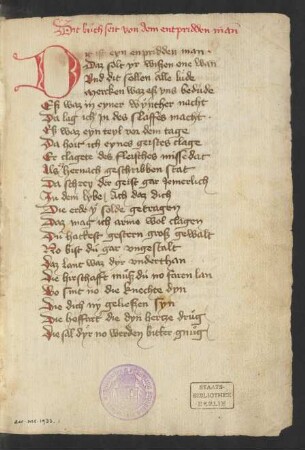 Dit buch seit von dem entpridden man
Dis ist eyn enpridden man
Daz solt yr wißen one wan
Vnd dit sollen alle lude
Mercken waz eß vns bedude
Eß waz in eyner wynther nacht
Da lag ich in des slaffes macht
Eß waz eyn teyl vor dem tage
Da hort ich eynes geistes clage
Er clagete des fleisches misse dat
Als hernach geschribben stat
Da schrey der geist gar jemerlich
In dem lybe Ach daz dich
Die erde y solde getragen
Daz mag ich arme wol clagen
Du hattest gestern groß gewalt
No bist du gar vngestalt
Daz lant waz dyr vnderthan
Die hirschafft must du no faren lan
Wo sint no die knechte dyn
Die dich ny geließen syn
Die hoffart die dyn hertze drug
Die sal dyr no werden bitter gnug
STAATS-
BIBLIOTHEK
BERLIN
acc. ms. 1933.